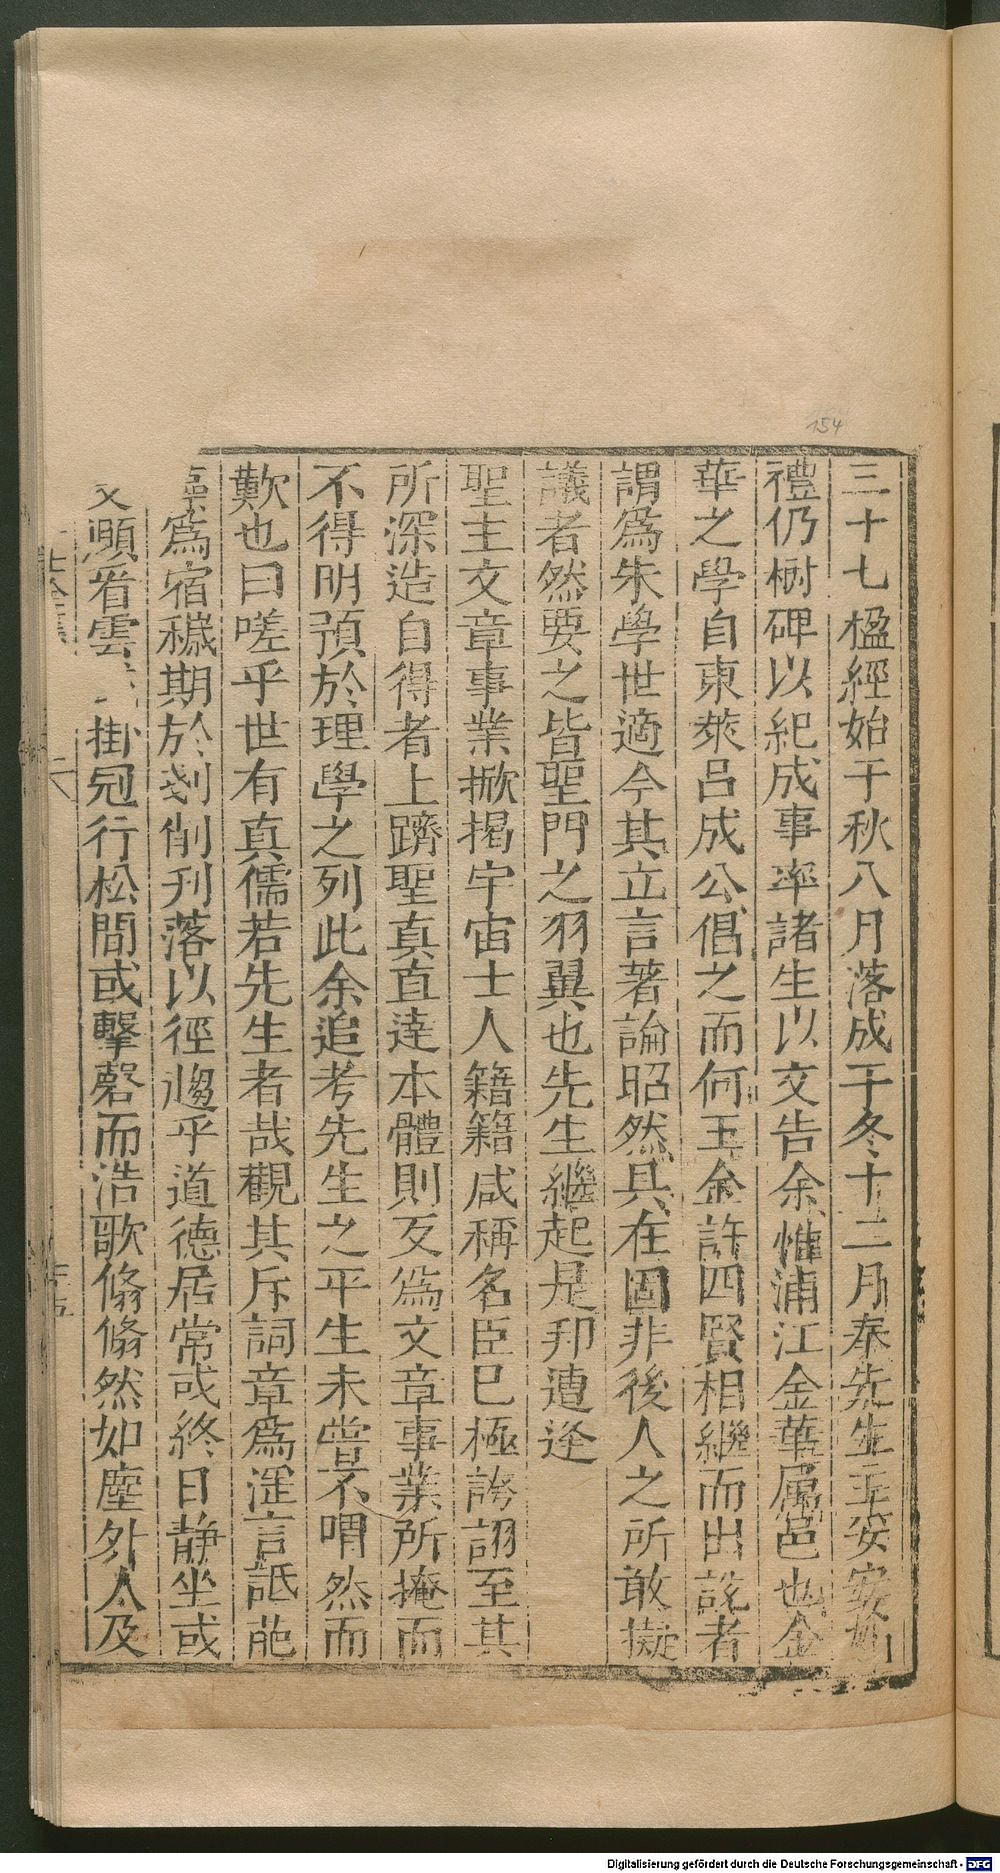 三十七楹經始于秋八月落成于冬十二月奉先生主安安如
禮仍樹碑以紀成事率諸生以文告余惟浦江金華屬邑也金
華之學自東萊呂成公倡之而何王金許四賢相繼而出說者
謂爲朱學世適今其立言著論昭然具在固非後人之所敢擬
議者然要之皆聖門之羽翼也先生繼起是邦遭逢
聖主文章事業掀揭宇宙士人籍籍咸稱名臣巳極誇詡至其
所深造自得者上躋聖真直達本體則反爲文章事業所掩而
不得明預於理學之列此余追考先生之平生未嘗不喟然而
歎也曰嗟乎世有真儒若先生者哉觀其斥詞章爲淫言詆葩
爲宿穢期於剗削刋落以徑趨乎道德居常或終日静坐或
又顒看雲 掛冠行松間或擊磬而浩歌翛翛然如塵外人及
154
Digitalisierung gefördert durch die Deutsche Forschungsgemeinschaft - DFG